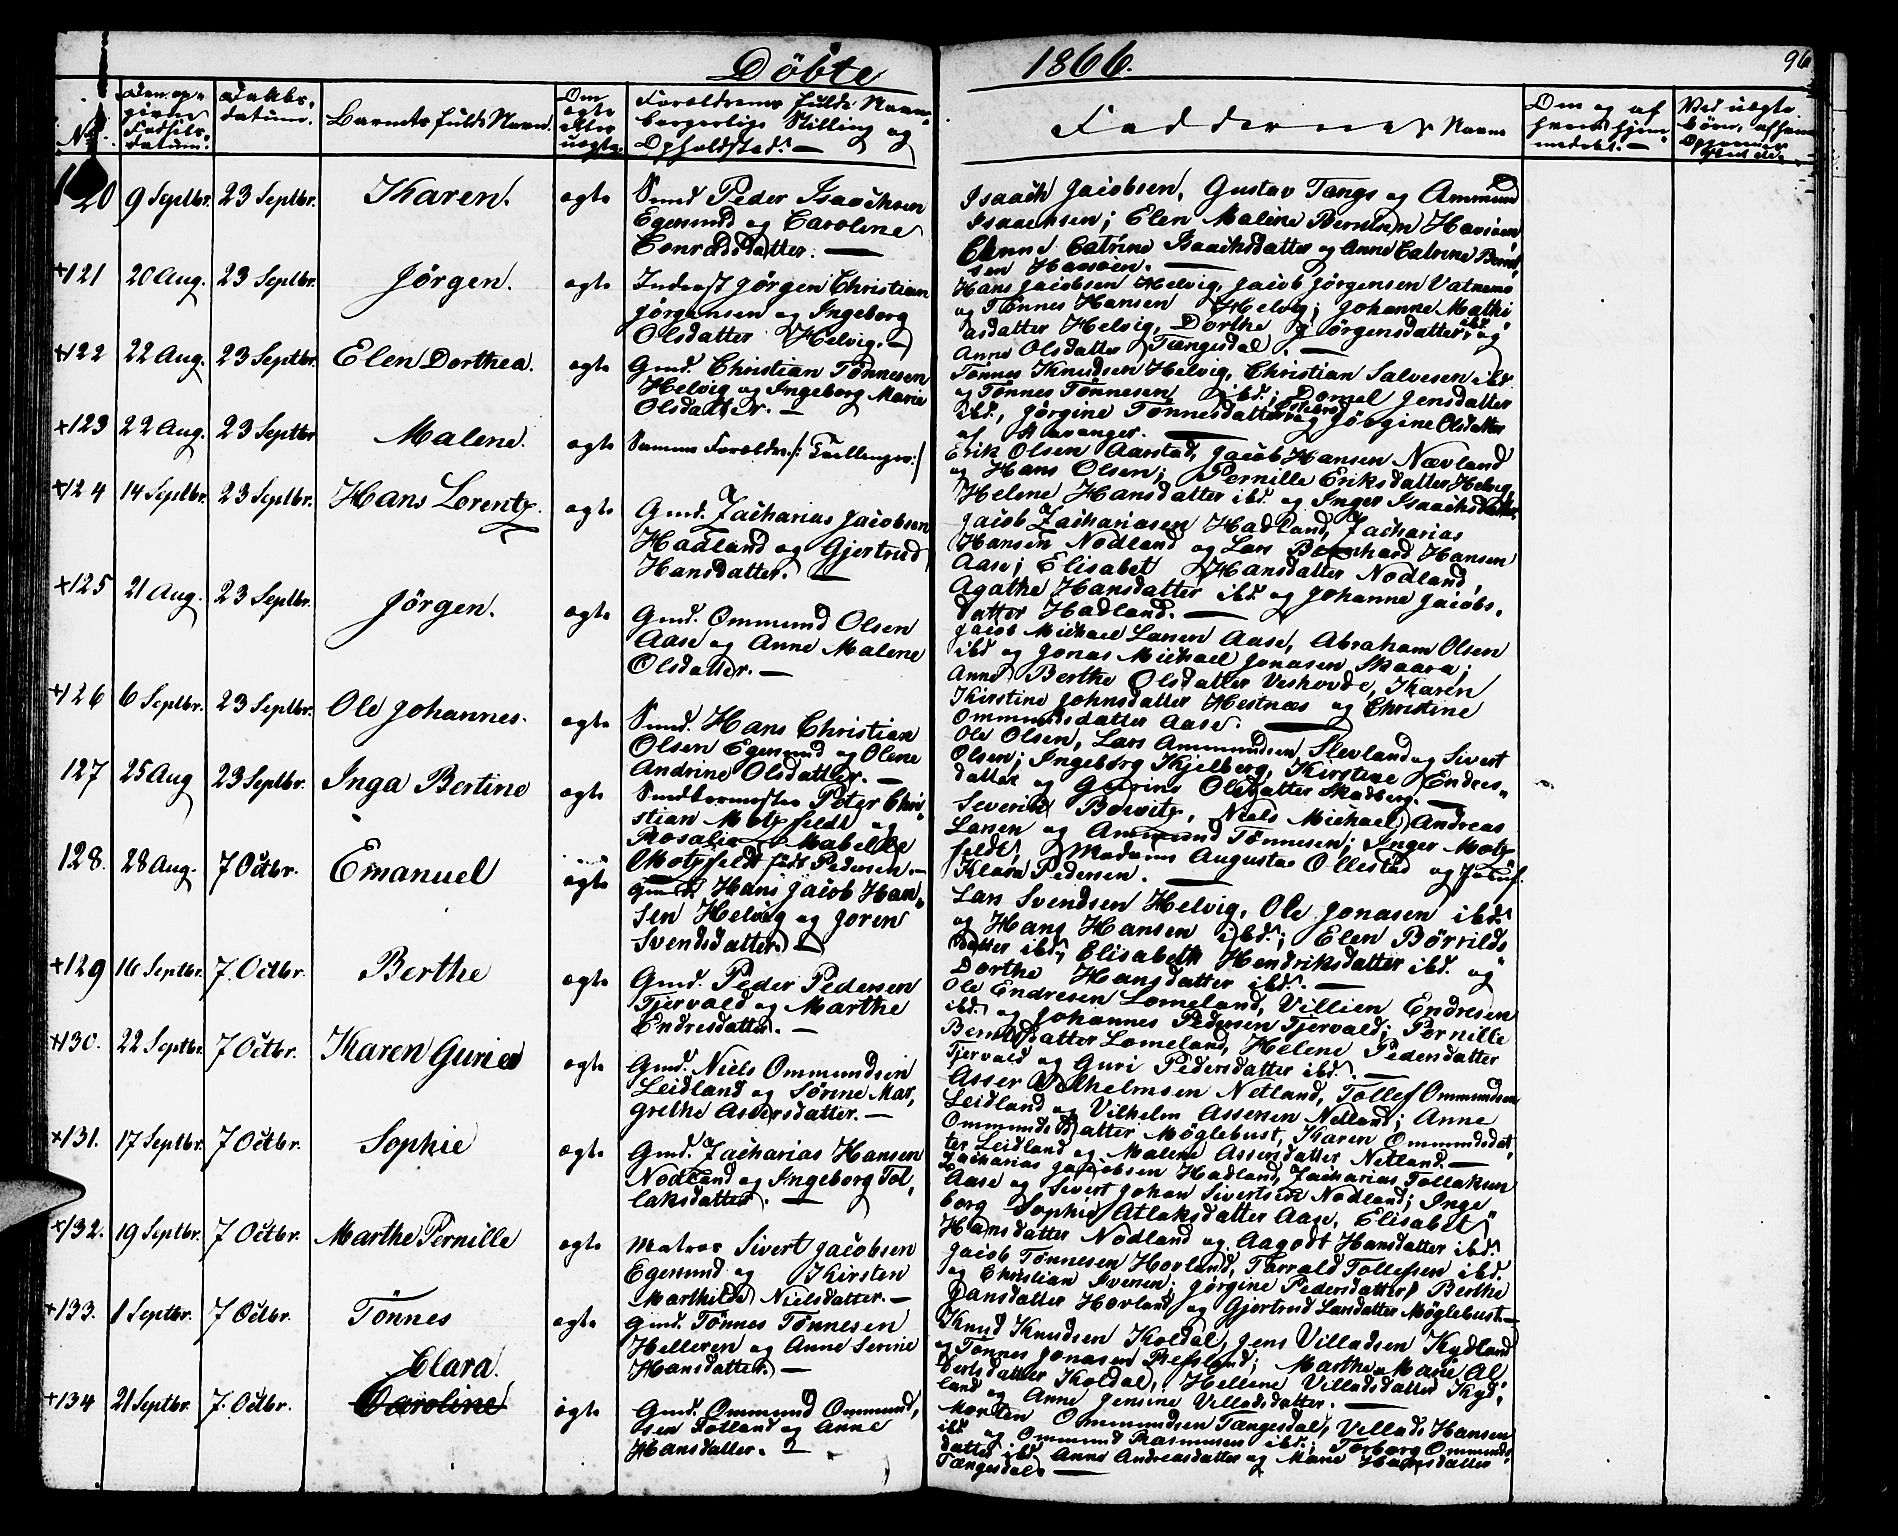 Döbte 1866. 96
No.
Den op-
givne
Fødsels-
datum.
Daabs-
datum.
Barnets fulde Navn.
Om
ægte
eller
uægte
Forældrenes fulde Navn,
borgerlige Stilling og
Opholdsted. —
Faddernes Navne
Om og af
hvem hjem-
medøbt. —
Ved uægte
børn,
120 9 Septbr. 23 Septbr. Karen. ægte
Smed Peder Isaachsen
Egersund og Caroline
Conradsdatter. —
Isaach Jacobsen, Gustav Tængs og Ammund
Isaachsen; Elen Maline Berntsen Havsøen,
Anne Catrine Isaachsdatter og Anne Catrine Bernt-
sen Havsøen. —
+121 20 Aug. 23 Septbr. Jörgen. ægte
Inderst Jörgen Christian
Jörgensen og Ingeborg
Olsdatter Helvig. —
Hans Jacobsen Helvig, Jacob Jörgensen Vatnemo
og Tönnes Hansen Helvig; Johanne Mathi-
asdatter Helvig, Dorthe Jörgensdatter ibd. og
Anne Olsdatter Tængesdal. —
+122 22 Aug. 23 Septbr. Elen Dorthea. ægte
Gmd. Christian Tönnesen
Helvig og Ingeborg Marie
Olsdatter. —
Tönnes Knudsen Helvig, Christian Salvesen ibd.
og Tönnes Tönnesen ibd.; Dornel Jensdatter
ibd., Jörgine Tönnesdatter og Jörgine Olsdatter
af Stavanger. —
+123 22 Aug. 23 Septbr Malene. ægte
Samme Forældre /: Tvillinger :/
Erik Olsen Aarstad, Jacob Hansen Nævland
og Hans Olsen; Pernille Eriksdatter Helvig,
Helene Hansdatter ibd. og Inger Isaachsdatter.
+124 14 Septbr. 23 Septbr. Hans Lorentz. ægte
Gmd. Zacharias Jacobsen
Hadland og Gjertrud
Hansdatter. —
Jacob Zachariasen Hadland, Zacharias
Hansen Nodland og Lars Bernhard Hansen
Aase; Elisabet Hansdatter Nodland,
Agathe Hansdatter ibd. og Johanne Jacobs-
datter Hadland. —
+125 21 Aug. 23 Septbr. Jörgen. ægte
Gmd. Ommund Olsen
Aase og Anne Malene
Olsdatter. —
Jacob Michael Larsen Aase, Abraham Olsen
ibd. og Jonas Michael Jonasen Skaara;
Anne Berthe Olsdatter Veshovde, Karen
Kirstine Johnsdatter Hestnes og Christine
Ommundsdatter Aase. —
+126 6 Septbr. 23 Septbr. Ole Johannes. ægte
Smd. Hans Christian
Olsen Egersund og Olene
Andrine Olsdatter. —
Ole Olsen, Lars Ammundsen Slevland og Sivert
Olsen; Ingeborg Kjelberg, Kirstine Endres-
datter og Gurine Olsdatter Skadberg. —
127 25 Aug 23 Septbr. Inga Bertine ægte
Peter Chri-
stian Motzfeldt og
Rosalie Mabelle
Motzfeldt født Pedersen. —
Severin Borvitz, Niels Michael Andreas
Larsen og Ammund Tönnesen; Inger Motz-
feldt, Madame Augusta Ollestad og
Klara Pedersen. —
128. 28 Aug. 7 Octbr. Emanuel ægte
Gmd. Hans Jacob Han-
sen Helvig og Joren
Svendsdatter. —
Lars Svendsen Helvig, Ole Jonasen ibd.
og Hans Hansen ibd.; Elen Börrilds-
datter ibd., Elisabeth Hendriksdatter ibd. og
Dorthe Hansdatter ibd. —
+129 16 Septbr. 7. Octbr. Berthe ægte
Gmd. Peder Pedersen
Tjervald og Marthe
Endresdatter. —
Ole Endresen Lomeland, Villien Endresen
ibd. og Johannes Pedersen Tjervald; Pernille
Berntsdatter Lomeland, Helene Pedersdatter
Tjervald og Guri Pedersdatter ibd. —
+130. 22 Septbr. 7 Octbr. Karen Gurie ægte
Gmd. Niels Ommundsen
Leidland og Sörine Mar-
grethe Assersdatter. —
Asser Vilhelmsen Netland, Tollef Ommundsen
Leidland og Vilhelm Assersen Netland; Anne
Ommundsdatter Møglebust, Karen Ommundsdat-
ter Leidland og Malene Assersdatter Netland. —
+131. 17 Septbr. 7 Octbr. Sophie ægte
Gmd. Zacharias Hansen
Nodland og Ingeborg Tol-
laksdatter. —
Zacharias Jacobsen Hadland, Zacharias Tollaksen
Aase og Sivert Johan Sivertsen Nodland; Inge-
borg Sophie Atlaksdatter Aase, Elisabet
Hansdatter Nodland og Aagodt Hansdatter ibd.
+132. 19 Septbr. 7 Octbr. Marthe Pernille ægte
Matros Sivert Jacobsen
Egersund og Kirsten
Marthilde Nielsdatter. —
Jacob Tönnesen Hovland, Tarrald Tollefsen ibd.
og Christian Iversen; Jörgine Pedersdatter, Berthe
Jansdatter Hovland og Gjertrud Larsdatter Møglebust —
+133. 1 Septbr. 7 Octbr. Tönnes ægte
Gmd. Tönnes Tönnesen
Helleren og Anne Serine
Hansdatter. —
Knud Knudsen Koldal, Jens Villadsen Kydland
og Tönnes Jonasen Refsland; Marthe Marie Al-
bertsdatter Koldal, Hellene Villadsdatter Kyd-
land og Anne Jensine Villadsdatter. —
+134 21 Septbr. 7. Octbr. Clara.
Caroline ægte
Gmd. Ommund Ommund-
sen Fotland og Anne
Hansdatter. —
Morten Ommundsen Tængesdal, Villads Hansen
ibd. og Ommund Rasmusen ibd.; Torborg Ommunds-
datter ibd. Anne Andreasdatter og Marie Hansdatter
Tængesdal. —